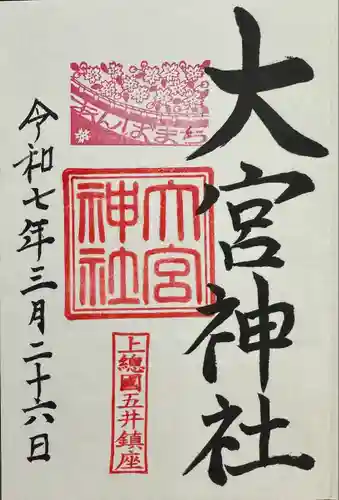 大宮神社
おんばまち
大宮
神社
上總國五井鎮座
令和七年三月二十六日